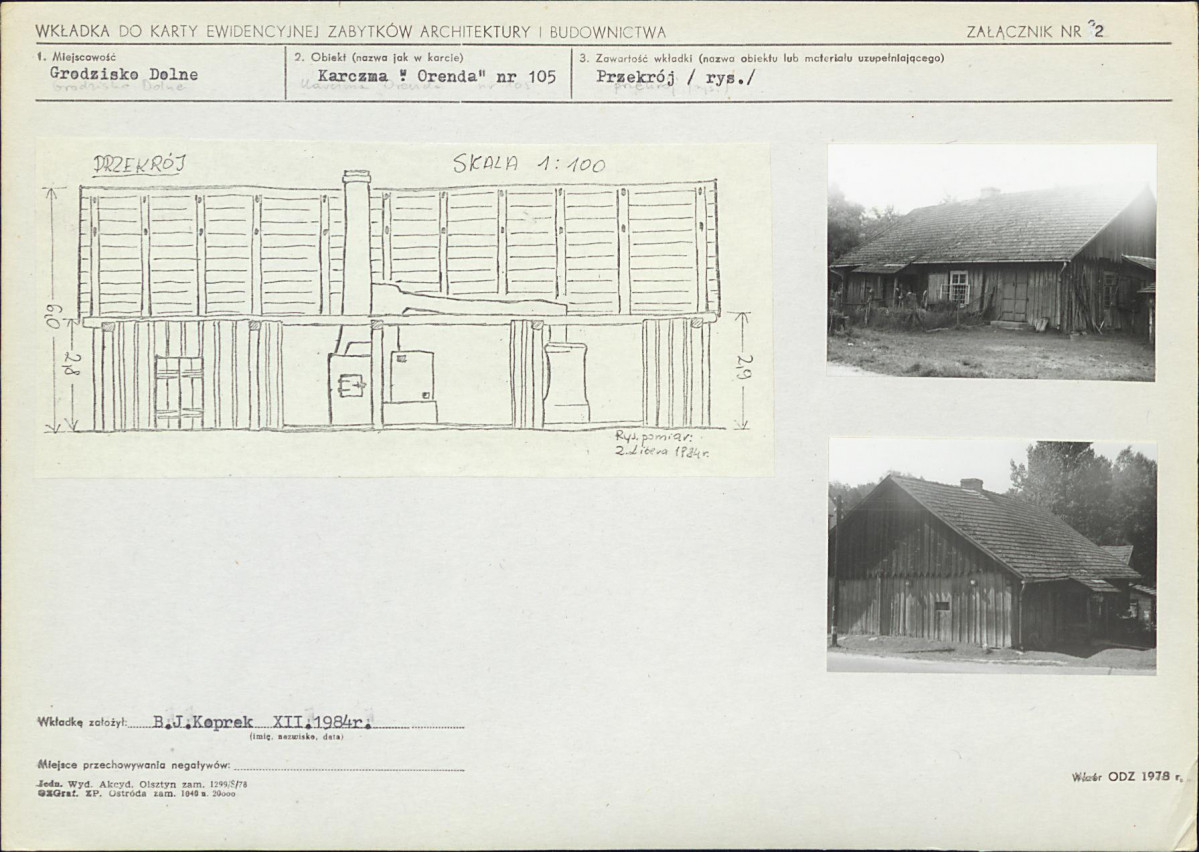 WKŁADKA DO KARTY EWIDENCYJNEJ ZABYTKÓW ARCHITEKTURY I BUDOWNICTWA
ZAŁĄCZNIK NR 2
1. Miejscowość
Grodzisko Dolne
2. Obiekt (nazwa jak w karcie)
Karczma " Orenda" nr 105
3. Zawartość wkładki (nazwa obiektu lub materiału uzupełniającego)
Przekrój / rys./
PRZEKRÓJ
SKALA 1:100
6,0
2,8
2,9
Rys. pomiar:
Z. Litera 1984r.
Wkładkę założył: B.J.Koprek XII.1984r.
(imię, nazwisko, data)
Miejsce przechowywania negatywów:
Jedn. Wyd. Akcyd. Olsztyn zam. 1299/S/78
OZGraf. ZP. Ostróda zam. 1040 n. 20000
Wzór ODZ 1978 r.